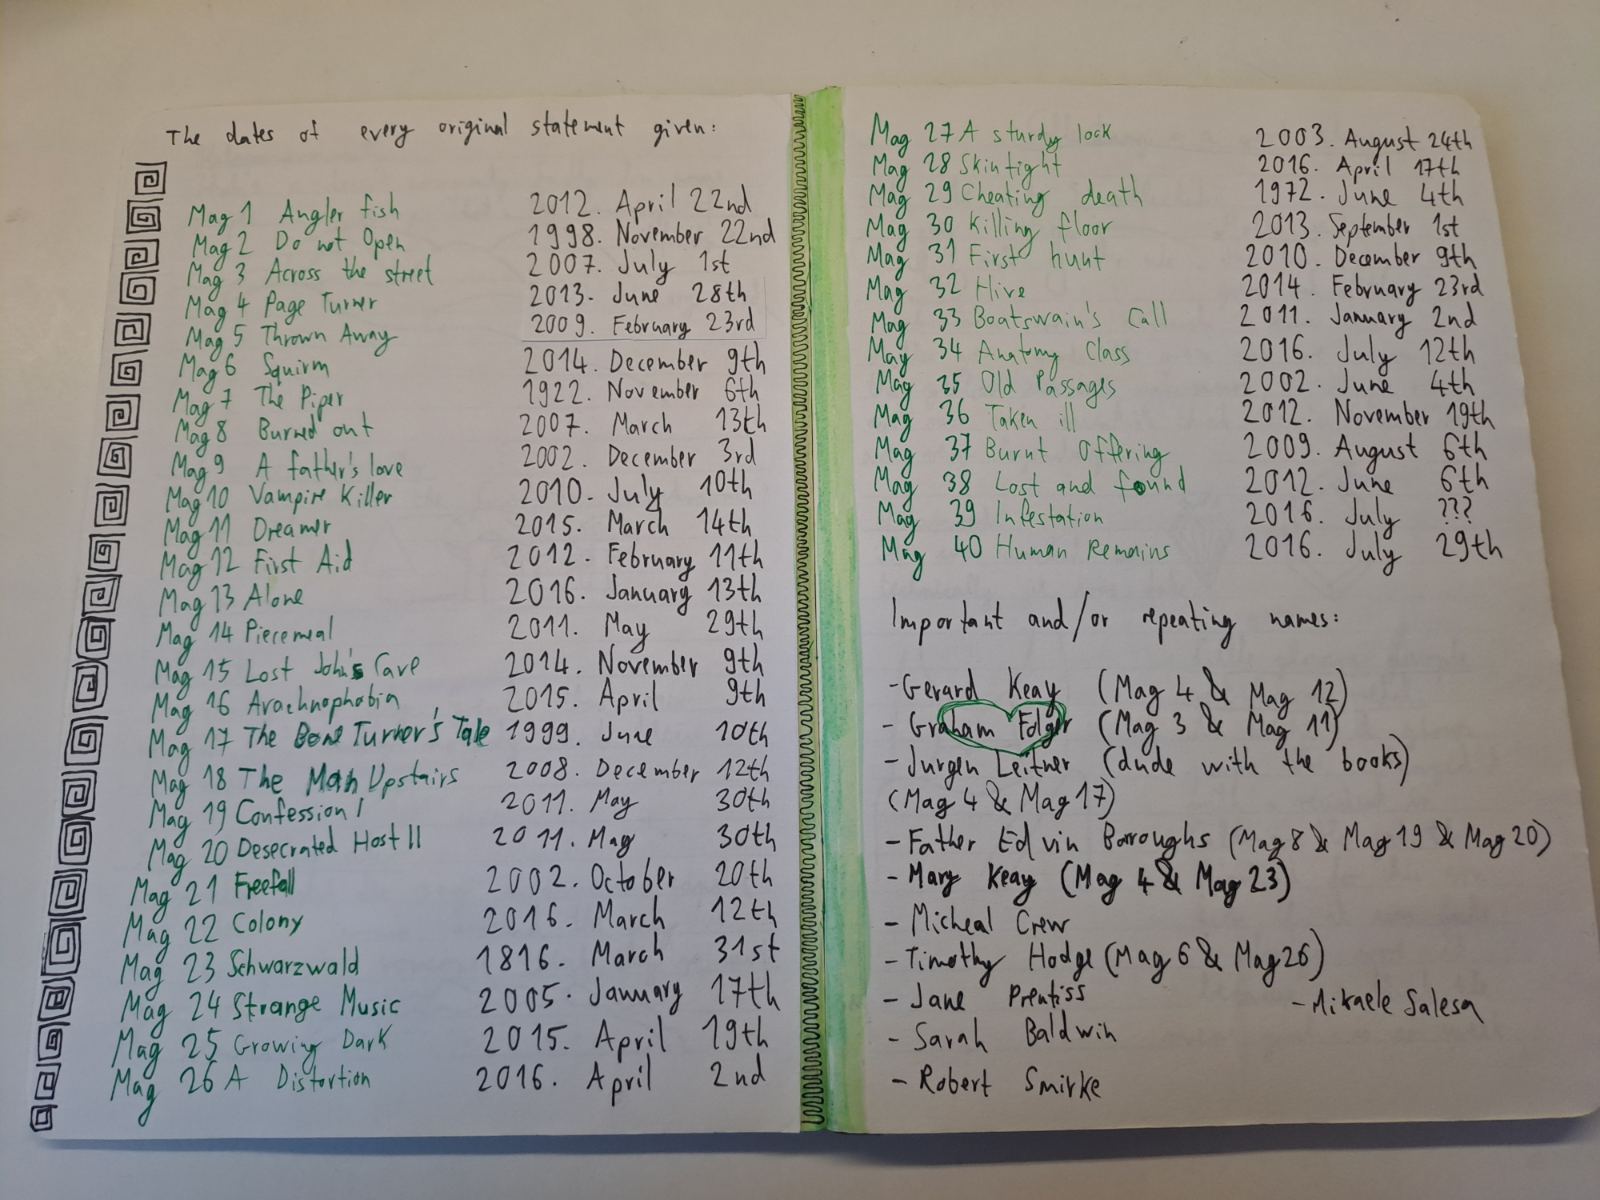 The dates of every original statement given:
Mag 1 Angler fish 2012. April 22nd
Mag 2 Do not Open 1998. November 22nd
Mag 3 Across the street 2007. July 1st
Mag 4 Page Turner 2013. June 28th
Mag 5 Thrown Away 2009. February 23rd
Mag 6 Squirm 2014. December 9th
Mag 7 The Piper 1922. November 6th
Mag 8 Burned out 2007. March 13th
Mag 9 A father's love 2002. December 3rd
Mag 10 Vampire Killer 2010. July 10th
Mag 11 Dreamer 2015. March 14th
Mag 12 First Aid 2012. February 11th
Mag 13 Alone 2016. January 13th
Mag 14 Piecemeal 2011. May 29th
Mag 15 Lost John's Cave 2014. November 9th
Mag 16 Arachnophobia 2015. April 9th
Mag 17 The Bone Turner's Tale 1999. June 10th
Mag 18 The Man Upstairs 2008. December 12th
Mag 19 Confession I 2011. May 30th
Mag 20 Desecrated Host II 2011. May 30th
Mag 21 Freefall 2002. October 20th
Mag 22 Colony 2016. March 12th
Mag 23 Schwarzwald 1816. March 31st
Mag 24 Strange Music 2005. January 17th
Mag 25 Growing Dark 2015. April 19th
Mag 26 A Distortion 2016. April 2nd
Mag 27 A sturdy lock 2003. August 24th
Mag 28 Skintight 2016. April 17th
Mag 29 Cheating death 1972. June 4th
Mag 30 Killing floor 2013. September 1st
Mag 31 First hunt 2010. December 9th
Mag 32 Hive 2014. February 23rd
Mag 33 Boatswain's Call 2011. January 2nd
Mag 34 Anatomy Class 2016. July 12th
Mag 35 Old Passages 2002. June 4th
Mag 36 Taken ill 2012. November 19th
Mag 37 Burnt Offering 2009. August 6th
Mag 38 Lost and found 2012. June 6th
Mag 39 Infestation 2016. July ???
Mag 40 Human Remains 2016. July 29th
Important and/or repeating names:
-Gerard Keay (Mag 4 & Mag 12)
- Graham Folger (Mag 3 & Mag 11)
- Jurgen Leitner (dude with the books)
(Mag 4 & Mag 17)
- Father Edvin Borroughs (Mag 8 & Mag 19 & Mag 20)
- Mary Keay (Mag 4 & Mag 23)
- Micheal Crew
- Timothy Hodge (Mag 6 & Mag 26)
- Jane Prentiss - Mikaele Salesa
- Sarah Baldwin
- Robert Smirke